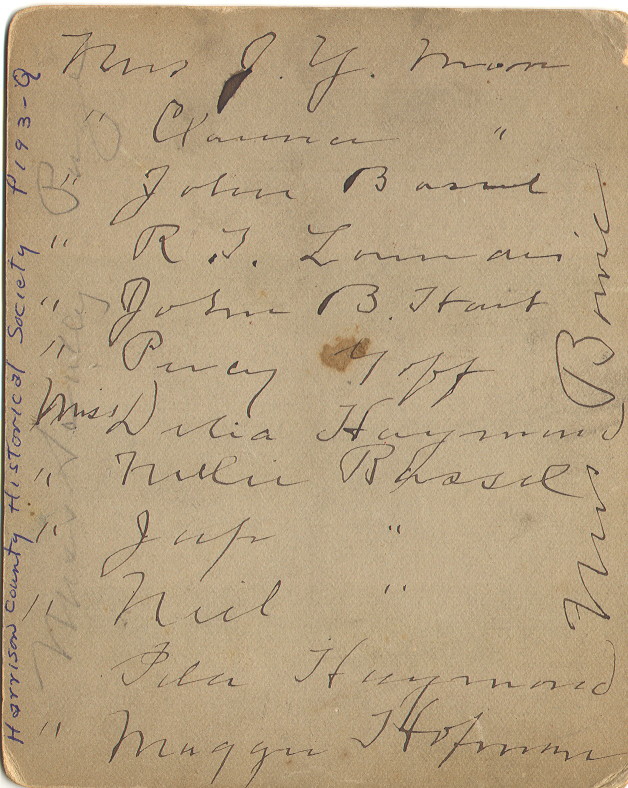 Mrs J. Y. Moore
" "
" John Bassel
" R. T. Lowndes
" John B. Hart
" Percy Goff
Miss Delia Haymond
" Nellie Bassel
" Jap "
" Neil "
Ida Haymond
" Maggie Hofman
Harrison County Historical Society P193-9
Mrs